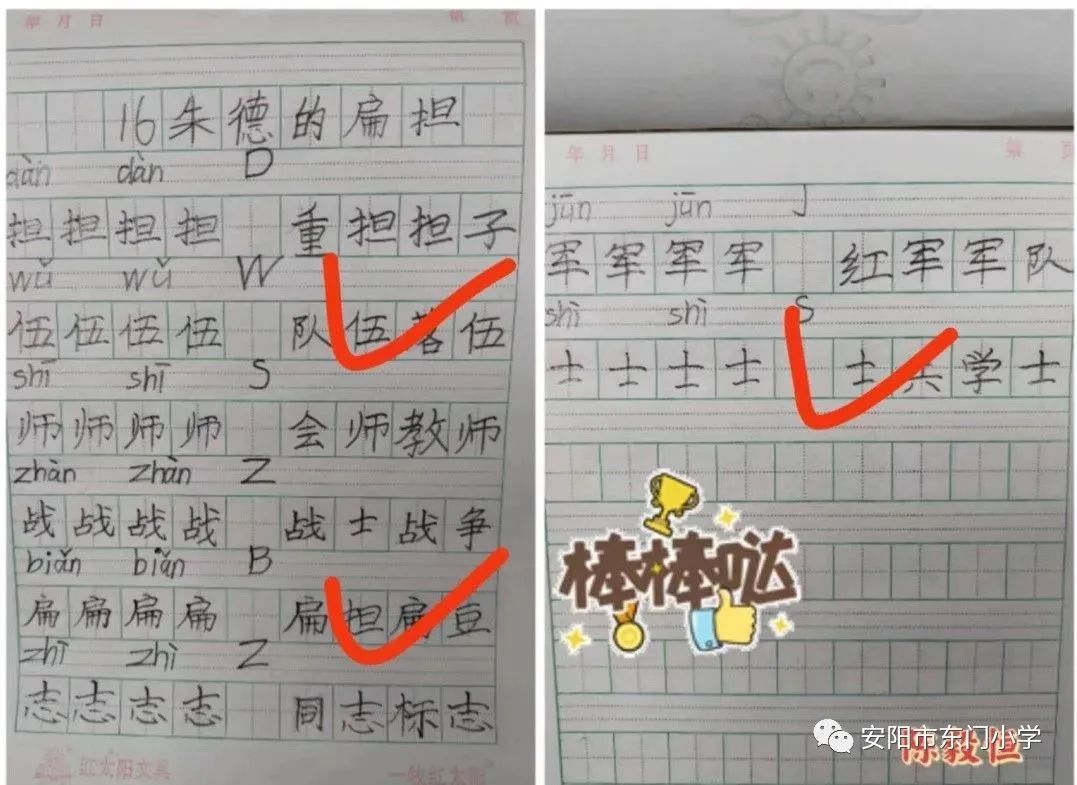 年 月 日
16朱德的扁担
dàn dàn D
担担担担 重担担子
wǔ wǔ W
伍伍伍伍 队伍落伍
shī shī S
师师师师 会师教师
zhàn zhàn Z
战战战战 战士战争
biǎn biǎn B
扁扁扁扁 扁担扁豆
zhī zhì Z
志志志志 同志标志
红太阳文具
一牧红太阳
年 月 日
第 页
jūn jūn J
军军军军 红军军队
shì shì S
士士士士 士兵学士
棒棒哒
安阳市东门小学
陈毅恒